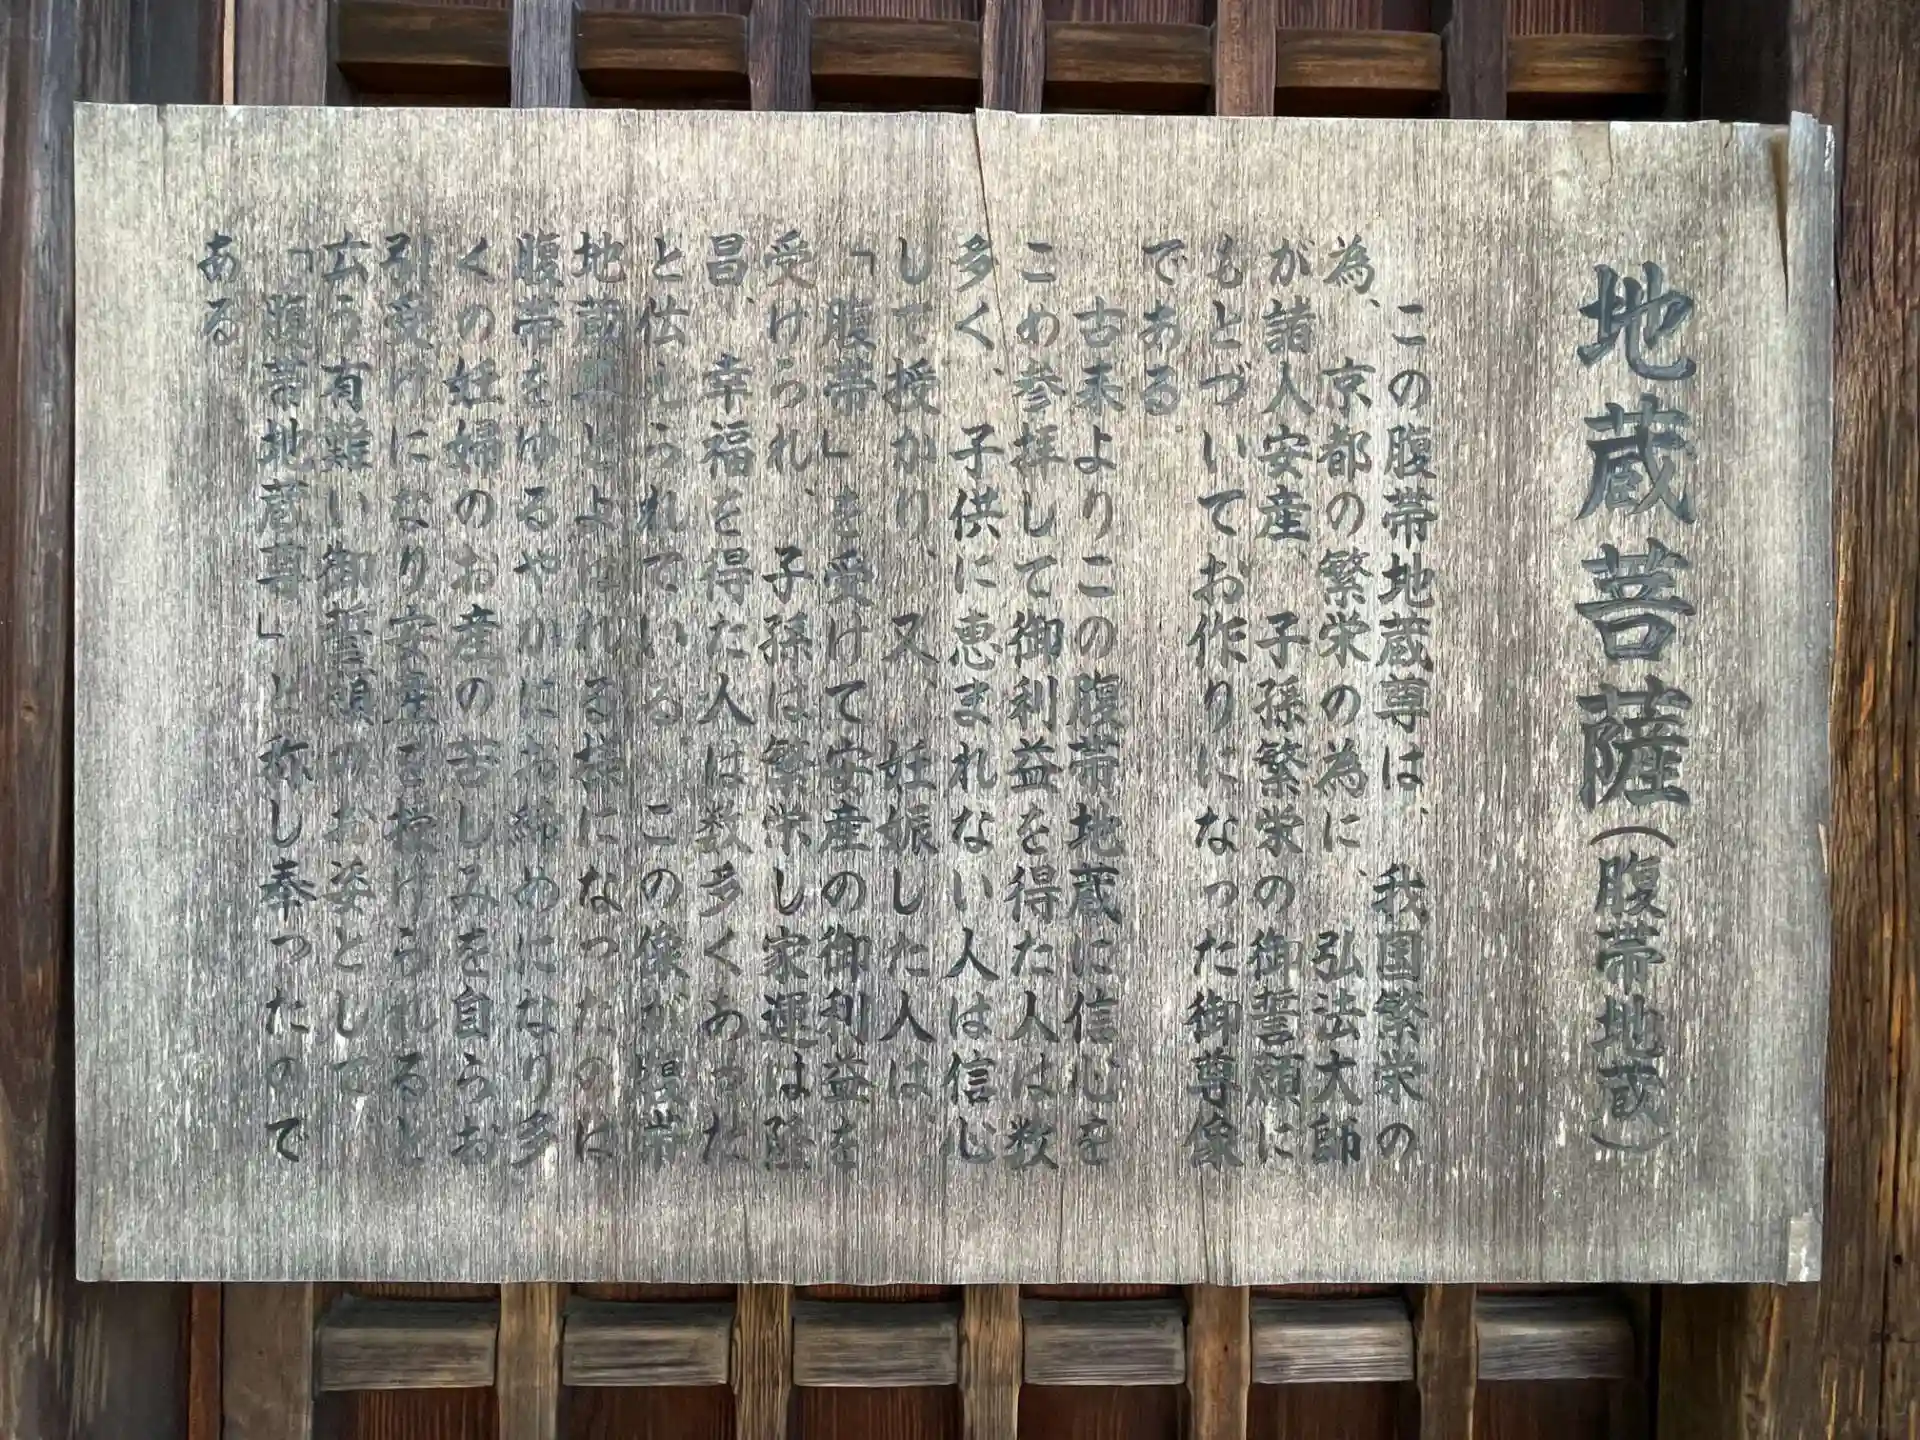 地蔵菩薩（腹帯地蔵）
この腹帯地蔵尊は、我国繁栄の
為、京都の繁栄の為に、弘法大師
が諸人安産、子孫繁栄の御誓願に
もとづいてお作りになった御尊象
である。
古来よりこの腹帯地蔵に信心を
こめ参拝して御利益を得た人は数
多く、子供に恵まれない人は信心
して授かり、又、妊娠した人は、
「腹帯」を受けて安産の御利益を
受けられ、子孫は繁栄し家運は隆
昌、幸福を得た人は数多くあった
と伝えられている。この像が腹帯
地蔵尊とよばれる様になったのは
腹帯をゆるやかにお締めになり多
くの妊婦のお産の苦しみを自うお
引受けになり安産を授けられると
広う有難い御誓願のお姿として、
「腹帯地蔵尊」と称し奉ったので
ある